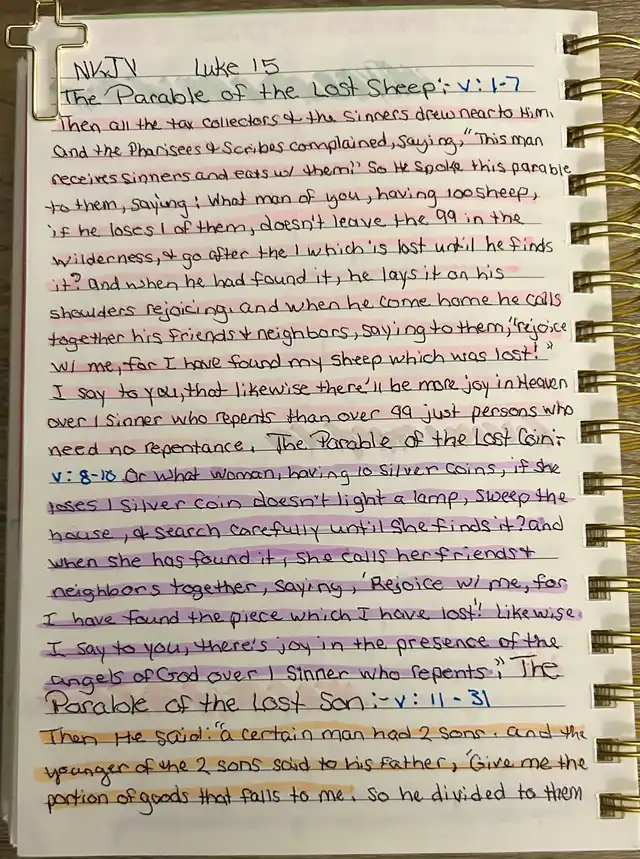 NKJV Luke 15
The Parable of the Lost Sheep:- v:1-7
Then all the tax collectors & the sinners drew near to Him.
And the Pharisees & Scribes complained, saying, "This man
receives sinners and eats w/ them!" So He spoke this parable
to them, saying: What man of you, having 100 sheep,
if he loses 1 of them, doesn't leave the 99 in the
wilderness, & go after the 1 which is lost until he finds
it? and when he had found it, he lays it on his
shoulders rejoicing. and when he come home he calls
together his friends & neighbors, saying to them, "rejoice
w/ me, for I have found my sheep which was lost!"
I say to you, that likewise there'll be more joy in Heaven
over 1 sinner who repents than over 99 just persons who
need no repentance. The Parable of the Lost Coin:-
v:8-10 Or what woman, having 10 silver coins, if she
loses 1 silver coin doesn't light a lamp, sweep the
house, & search carefully until she finds it? and
when she has found it, she calls her friends &
neighbors together, saying, 'Rejoice w/ me, for
I have found the piece which I have lost!' Likewise.
I say to you, there's joy in the presence of the
angels of God over 1 sinner who repents;" The
Parable of the Lost Son:- v: 11-31
Then He said: "a certain man had 2 sons. and the
younger of the 2 sons said to his Father, 'Give me the
portion of goods that falls to me. So he divided to them